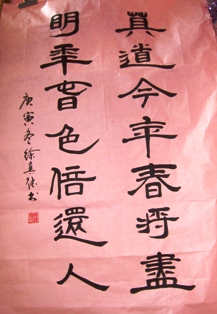 莫道今年春將盡
明年旾色倍還人
庚寅冬徐真书